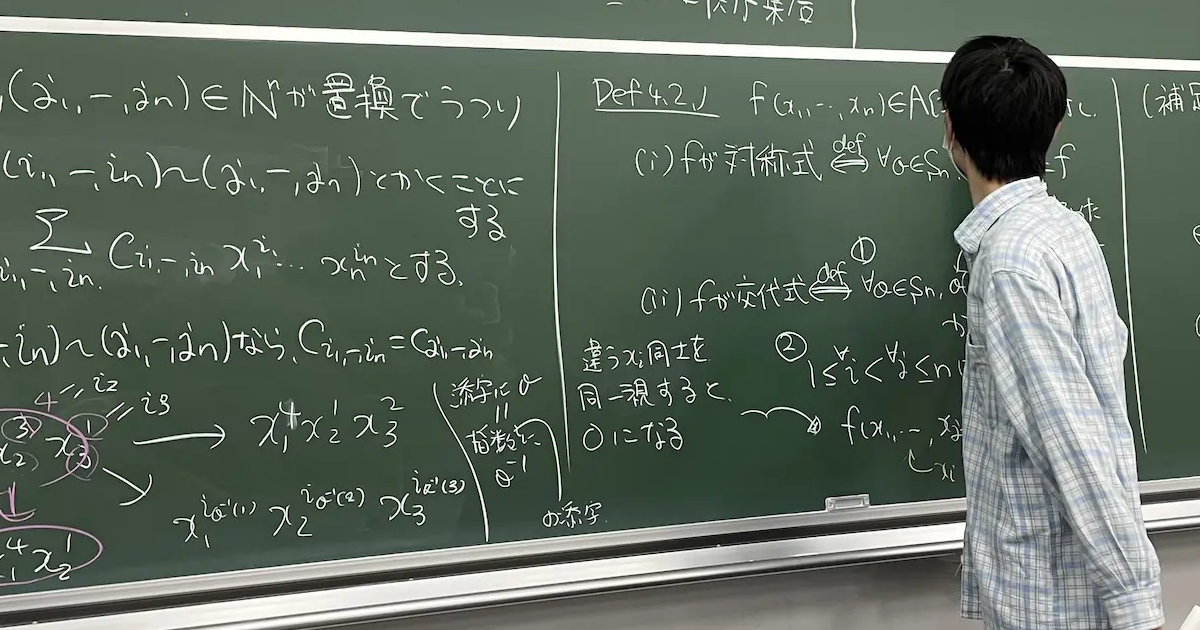 ,(j₁,−,jₙ)∈ℕⁿが置換でうつり
(i₁,−,iₙ)〜(j₁,−,jₙ)とかくことに
する
Σ
i₁,−,iₙ. C i₁,−,iₙ x₁^i₁ … xₙ^iₙ とする.
−,iₙ)〜(j₁,−,jₙ)なら, C i₁,−,iₙ = C j₁,−,jₙ
4 = i₂
3 1 = i₃
x₂ x₃ → x₁⁴ x₂¹ x₃²
x₁^i_σ⁻¹(1) x₂^i_σ⁻¹(2) x₃^i_σ⁻¹(3)
4 x₂¹
添字にσ
=
指数に
σ⁻¹
の添字.
Def 4.2.1 f(x₁,…,xₙ)∈A
(i) fが対称式 def⇔ ∀σ∈Sₙ f
①
(ii) fが交代式 def⇔ ∀σ∈Sₙ,
か
② 1≤∀i<∀j≤n
f(x₁,…,x
違うxᵢ同士を
同一視すると、
0になる
(補足